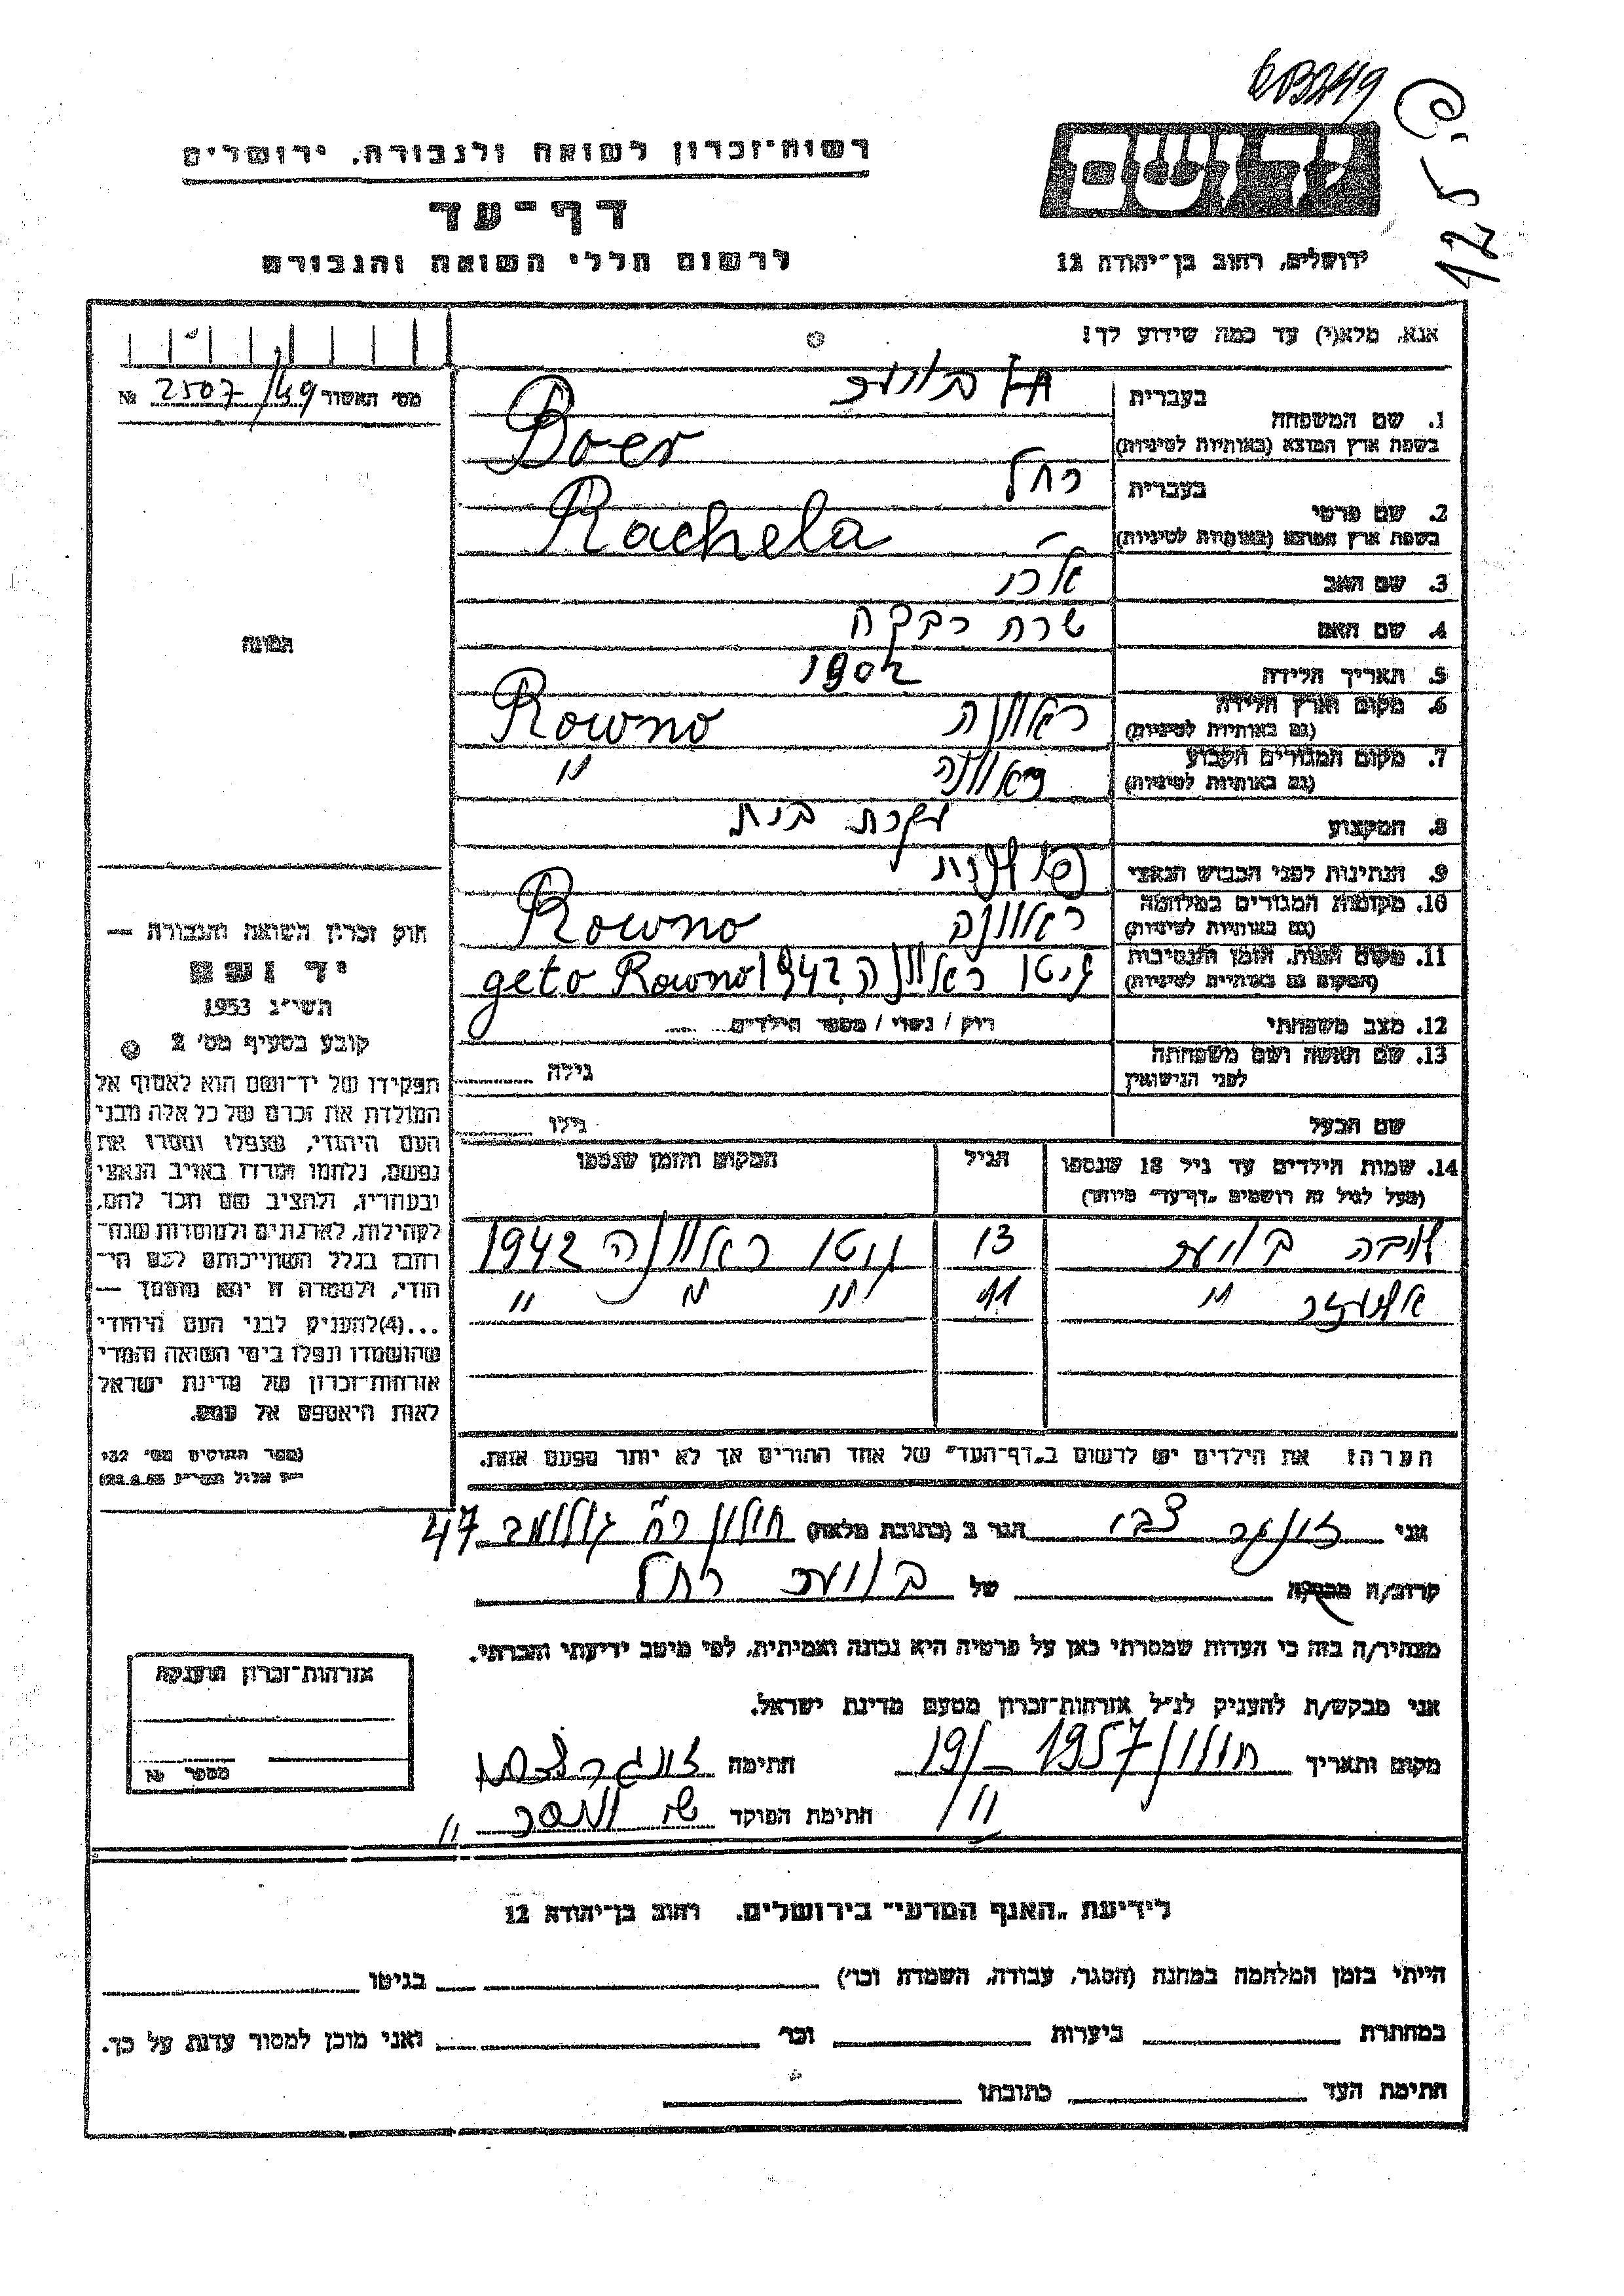 רשות-זכרון לשואה ולגבורה, ירושלים
דף-עד
לרשום חללי השואה והגבורה
יד ושם
ירושלים, רחוב בן-יהודה 12
125
אנא, מלא(י) עד כמה שידוע לך!
מס' האשור 2507/49 №
1. שם המשפחה
בעברית
בשפת ארץ המוצא (באותיות לטיניות)
Boer
2. שם פרטי
בעברית רחל
בשפת ארץ המוצא (באותיות לטיניות) Rachela
3. שם האב
4. שם האם שרה רבקה
5. תאריך הלידה 1902
6. מקום וארץ הלידה (גם באותיות לטיניות) ראוונה Rowno
7. מקום המגורים הקבוע (גם באותיות לטיניות) ראוונה "
8. המקצוע עקרת בית
9. הנתינות לפני הכבוש הנאצי פולנית
10. מקומות המגורים במלחמה (גם באותיות לטיניות) ראוונה Rowno
11. מקום המות, הזמן והנסיבות (המקום גם באותיות לטיניות) גיטו ראוונה 1942 geto Rowno
12. מצב משפחתי רווק / נשוי / מספר הילדים
13. שם האשה ושם משפחתה לפני הנישואין גילה
שם הבעל גילו
14. שמות הילדים עד גיל 18 שנספו
(מעל לגיל זה רושמים "דף-עד" מיוחד)
הגיל
המקום והזמן שנספו
13 גיטו ראוונה 1942
" 11 " " "
הערה: את הילדים יש לרשום ב"דף-העד" של אחד ההורים אך לא יותר מפעם אחת.
התמונה
חוק זכרון השואה והגבורה —
יד ושם
תשי"ג 1953
קובע בסעיף מס' 2
תפקידו של יד-ושם הוא לאסוף אל
המולדת את זכרם של כל אלה מבני
העם היהודי, שנפלו ומסרו את
נפשם, נלחמו ומרדו באויב הנאצי
ובעוזריו, ולהציב שם וזכר להם,
לקהילות, לארגונים ולמוסדות שנח-
רבו בגלל השתייכותם לעם הי-
הודי, ולמטרה זו יהא מוסמך —
...(4) להעניק לבני העם היהודי
שהושמדו ונפלו בימי השואה והמרי
אזרחות-זכרון של מדינת ישראל
לאות היאספם אל עמם.
(ספר החוקים מס' 132,
אלול תשי"ג 28.8.53)
אני צבי הגר ב (כתובת מלאה) חולון 47
קרוב/ה מכר/ה של רחל
מצהיר/ה בזה כי העדות שמסרתי כאן על פרטיה היא נכונה ואמיתית, לפי מיטב ידיעתי והכרתי.
אני מבקש/ת להעניק לנ"ל אזרחות-זכרון מטעם מדינת ישראל.
מקום ותאריך חולון 1957 חתימה
חתימת הפוקד
אזרחות-זכרון הוענקה
מספר №
לידיעת "האגף המדעי" בירושלים, רחוב בן-יהודה 12
הייתי בזמן המלחמה במחנה (הסגר, עבודה, השמדה וכו') בגיטו
במחתרת ביערות וכו' ואני מוכן למסור עדות על כך.
חתימת העד כתובתו